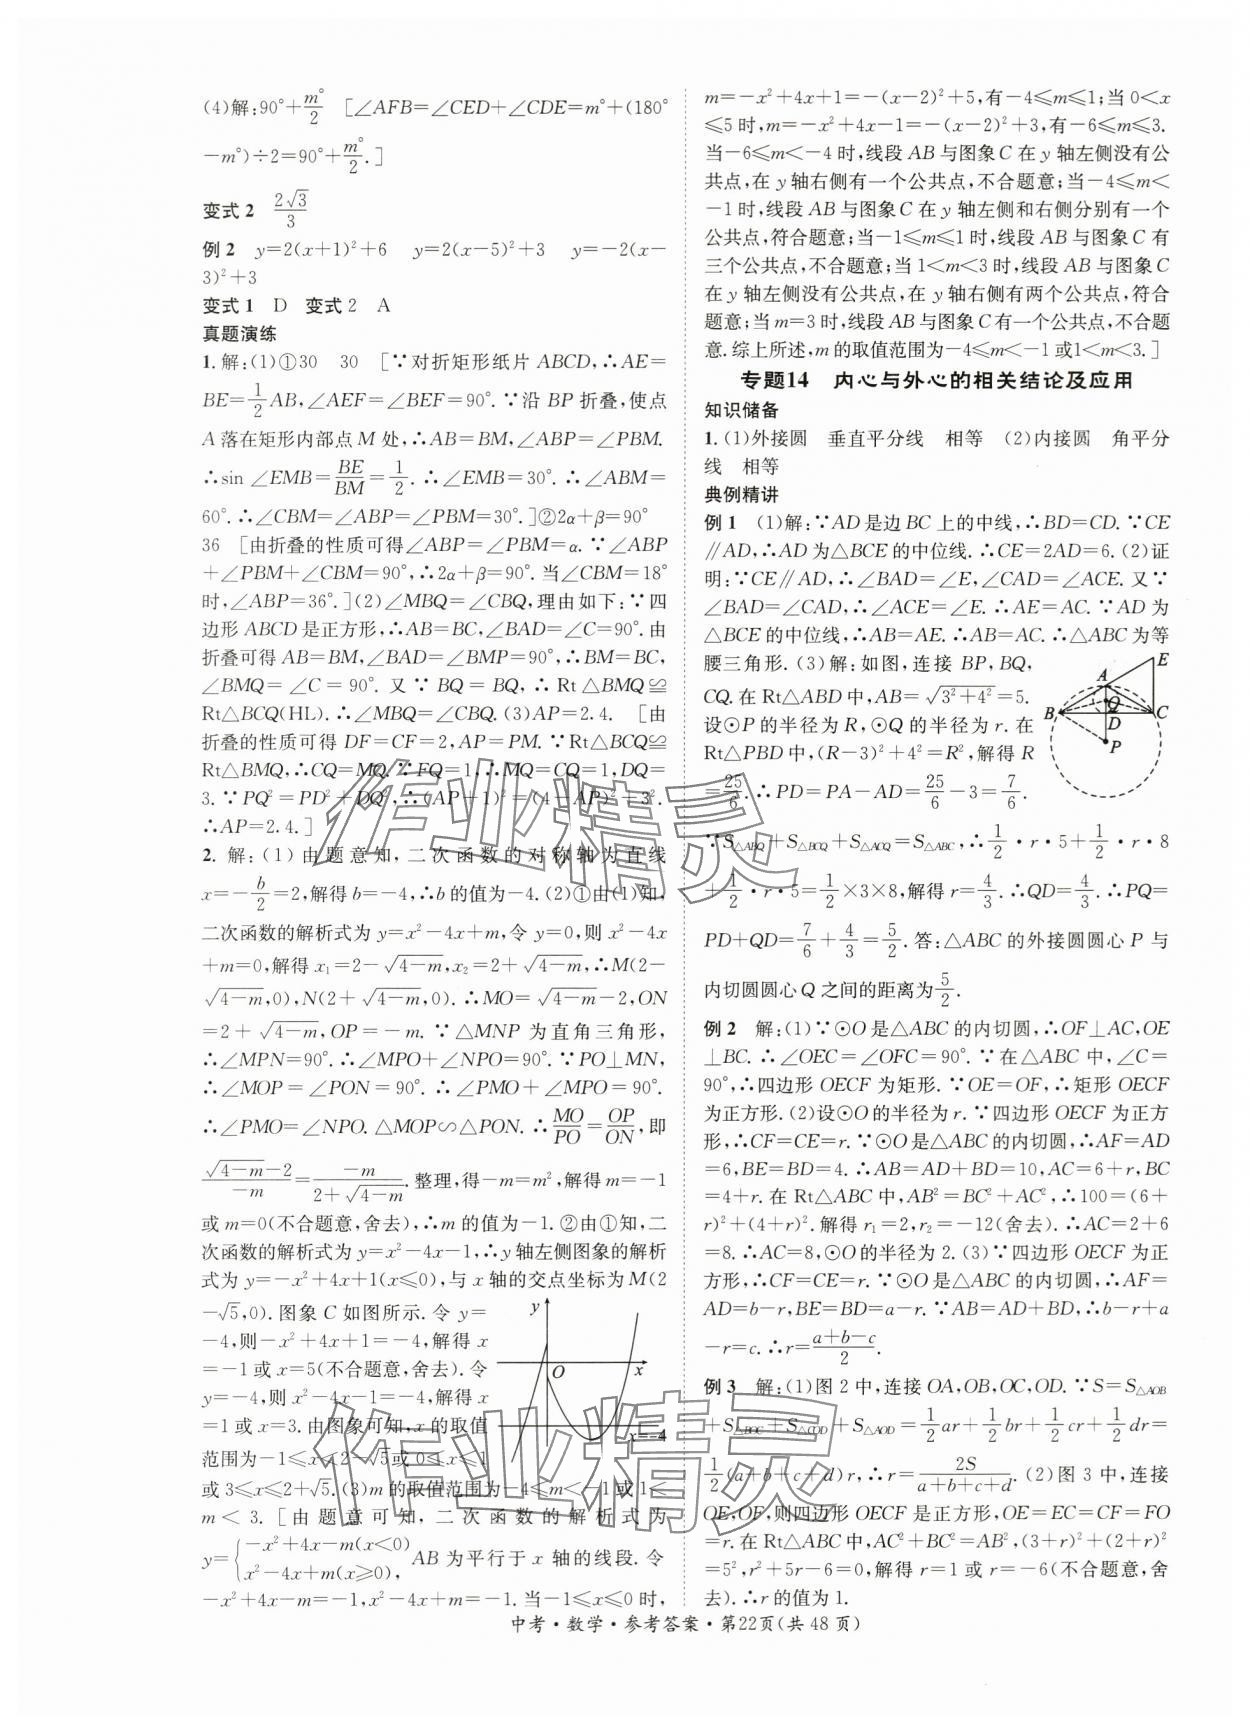 (4)解:90°+m°/2 [∠AFB=∠CED+∠CDE=m°+(180°
-m°)÷2=90°+m°/2.]
变式2 2√3/3
例2 y=2(x+1)²+6 y=2(x-5)²+3 y=-2(x-
3)²+3
变式1 D 变式2 A
真题演练
1.解:(1)①30 30 [∵对折矩形纸片ABCD,∴AE=
BE=1/2AB,∠AEF=∠BEF=90°.∵沿BP折叠,使点
A落在矩形内部点M处,∴AB=BM,∠ABP=∠PBM.
∴sin∠EMB=BE/BM=1/2.∴∠EMB=30°.∴∠ABM=
60°.∴∠CBM=∠ABP=∠PBM=30°.]②2α+β=90°
36 [由折叠的性质可得∠ABP=∠PBM=α.∵∠ABP
+∠PBM+∠CBM=90°,∴2α+β=90°.当∠CBM=18°
时,∠ABP=36°.](2)∠MBQ=∠CBQ,理由如下:∵四
边形ABCD是正方形,∴AB=BC,∠BAD=∠C=90°.由
折叠可得AB=BM,∠BAD=∠BMP=90°,∴BM=BC,
∠BMQ=∠C=90°.又∵BQ=BQ,∴Rt△BMQ≌
Rt△BCQ(HL).∴∠MBQ=∠CBQ.(3)AP=2.4. [由
折叠的性质可得DF=CF=2,AP=PM.∵Rt△BCQ≌
Rt△BMQ,∴CQ=MQ.∵FQ=1,∴MQ=CQ=1,DQ=
3.∵PQ²=PD²+DQ²,∴(AP+1)²=(4-AP)²+3².
∴AP=2.4.]
2.解:(1)由题意知,二次函数的对称轴为直线
x=-b/2=2,解得b=-4,∴b的值为-4.(2)①由(1)知,
二次函数的解析式为y=x²-4x+m,令y=0,则x²-4x
+m=0,解得x₁=2-√(4-m),x₂=2+√(4-m),∴M(2-
√(4-m),0),N(2+√(4-m),0).∴MO=√(4-m)-2,ON
=2+√(4-m),OP=-m.∵△MNP为直角三角形,
∴∠MPN=90°.∴∠MPO+∠NPO=90°.∵PO⊥MN,
∴∠MOP=∠PON=90°.∴∠PMO+∠MPO=90°.
∴∠PMO=∠NPO.△MOP∽△PON.∴MO/PO=OP/ON,即
(√(4-m)-2)/(-m)=(-m)/(2+√(4-m)).整理,得-m=m²,解得m=-1
或m=0(不合题意,舍去),∴m的值为-1.②由①知,二
次函数的解析式为y=x²-4x-1,∴y轴左侧图象的解析
式为y=-x²+4x+1(x≤0),与x轴的交点坐标为M(2
-√5,0).图象C如图所示.令y=
-4,则-x²+4x+1=-4,解得x
=-1或x=5(不合题意,舍去).令
y=-4,则x²-4x-1=-4,解得x
=1或x=3.由图象可知,x的取值
范围为-1≤x≤2-√5或0≤x≤1
或3≤x≤2+√5.(3)m的取值范围为-4≤m<-1或1<
m<3.[由题意可知,二次函数的解析式为
y={-x²+4x-m(x<0) x²-4x+m(x≥0), AB为平行于x轴的线段.令
-x²+4x-m=-1,x²-4x+m=-1.当-1≤x≤0时,
y
O
x
x=-4
m=-x²+4x+1=-(x-2)²+5,有-4≤m≤1;当0<x
≤5时,m=-x²+4x-1=-(x-2)²+3,有-6≤m≤3.
当-6≤m<-4时,线段AB与图象C在y轴左侧没有公
共点,在y轴右侧有一个公共点,不合题意;当-4≤m<
-1时,线段AB与图象C在y轴左侧和右侧分别有一个
公共点,符合题意;当-1≤m≤1时,线段AB与图象C有
三个公共点,不合题意;当1<m<3时,线段AB与图象C
在y轴左侧没有公共点,在y轴右侧有两个公共点,符合
题意;当m=3时,线段AB与图象C有一个公共点,不合题
意.综上所述,m的取值范围为-4≤m<-1或1<m<3.]
专题14 内心与外心的相关结论及应用
知识储备
1.(1)外接圆 垂直平分线 相等 (2)内接圆 角平分
线 相等
典例精讲
例1 (1)解:∵AD是边BC上的中线,∴BD=CD.∵CE
∥AD,∴AD为△BCE的中位线.∴CE=2AD=6.(2)证
明:∵CE∥AD,∴∠BAD=∠E,∠CAD=∠ACE.又∵
∠BAD=∠CAD,∴∠ACE=∠E.∴AE=AC.∵AD为
△BCE的中位线,∴AB=AE.∴AB=AC.∴△ABC为等
腰三角形.(3)解:如图,连接BP,BQ,
CQ.在Rt△ABD中,AB=√(3²+4²)=5.
设⊙P的半径为R,⊙Q的半径为r.在
Rt△PBD中,(R-3)²+4²=R²,解得R
=25/6.∴PD=PA-AD=25/6-3=7/6.
A
E
B
Q
D
C
P
∵S△ABQ+S△BCQ+S△ACQ=S△ABC,∴1/2·r·5+1/2·r·8
+1/2·r·5=1/2×3×8,解得r=4/3.∴QD=4/3.∴PQ=
PD+QD=7/6+4/3=5/2.答:△ABC的外接圆圆心P与
内切圆圆心Q之间的距离为5/2.
例2 解:(1)∵⊙O是△ABC的内切圆,∴OF⊥AC,OE
⊥BC.∴∠OEC=∠OFC=90°.∵在△ABC中,∠C=
90°,∴四边形OECF为矩形.∵OE=OF,∴矩形OECF
为正方形.(2)设⊙O的半径为r.∵四边形OECF为正方
形,∴CF=CE=r.∵⊙O是△ABC的内切圆,∴AF=AD
=6,BE=BD=4.∴AB=AD+BD=10,AC=6+r,BC
=4+r.在Rt△ABC中,AB²=BC²+AC²,∴100=(6+
r)²+(4+r)².解得r₁=2,r₂=-12(舍去).∴AC=2+6
=8.∴AC=8,⊙O的半径为2.(3)∵四边形OECF为正
方形,∴CF=CE=r.∵⊙O是△ABC的内切圆,∴AF=
AD=b-r,BE=BD=a-r.∵AB=AD+BD,∴b-r+a
-r=c.∴r=(a+b-c)/2.
例3 解:(1)图2中,连接OA,OB,OC,OD.∵S=S△AOB
+S△BOC+S△COD+S△AOD=1/2ar+1/2br+1/2cr+1/2dr=
1/2(a+b+c+d)r,∴r=2S/(a+b+c+d).(2)图3中,连接
OE,OF,则四边形OECF是正方形,OE=EC=CF=FO
=r.在Rt△ABC中,AC²+BC²=AB²,(3+r)²+(2+r)²
=5²,r²+5r-6=0,解得r=1或r=-6(不合题意,舍
去).∴r的值为1.
中考·数学·参考答案·第22页(共48页)
作业精灵
作业精灵